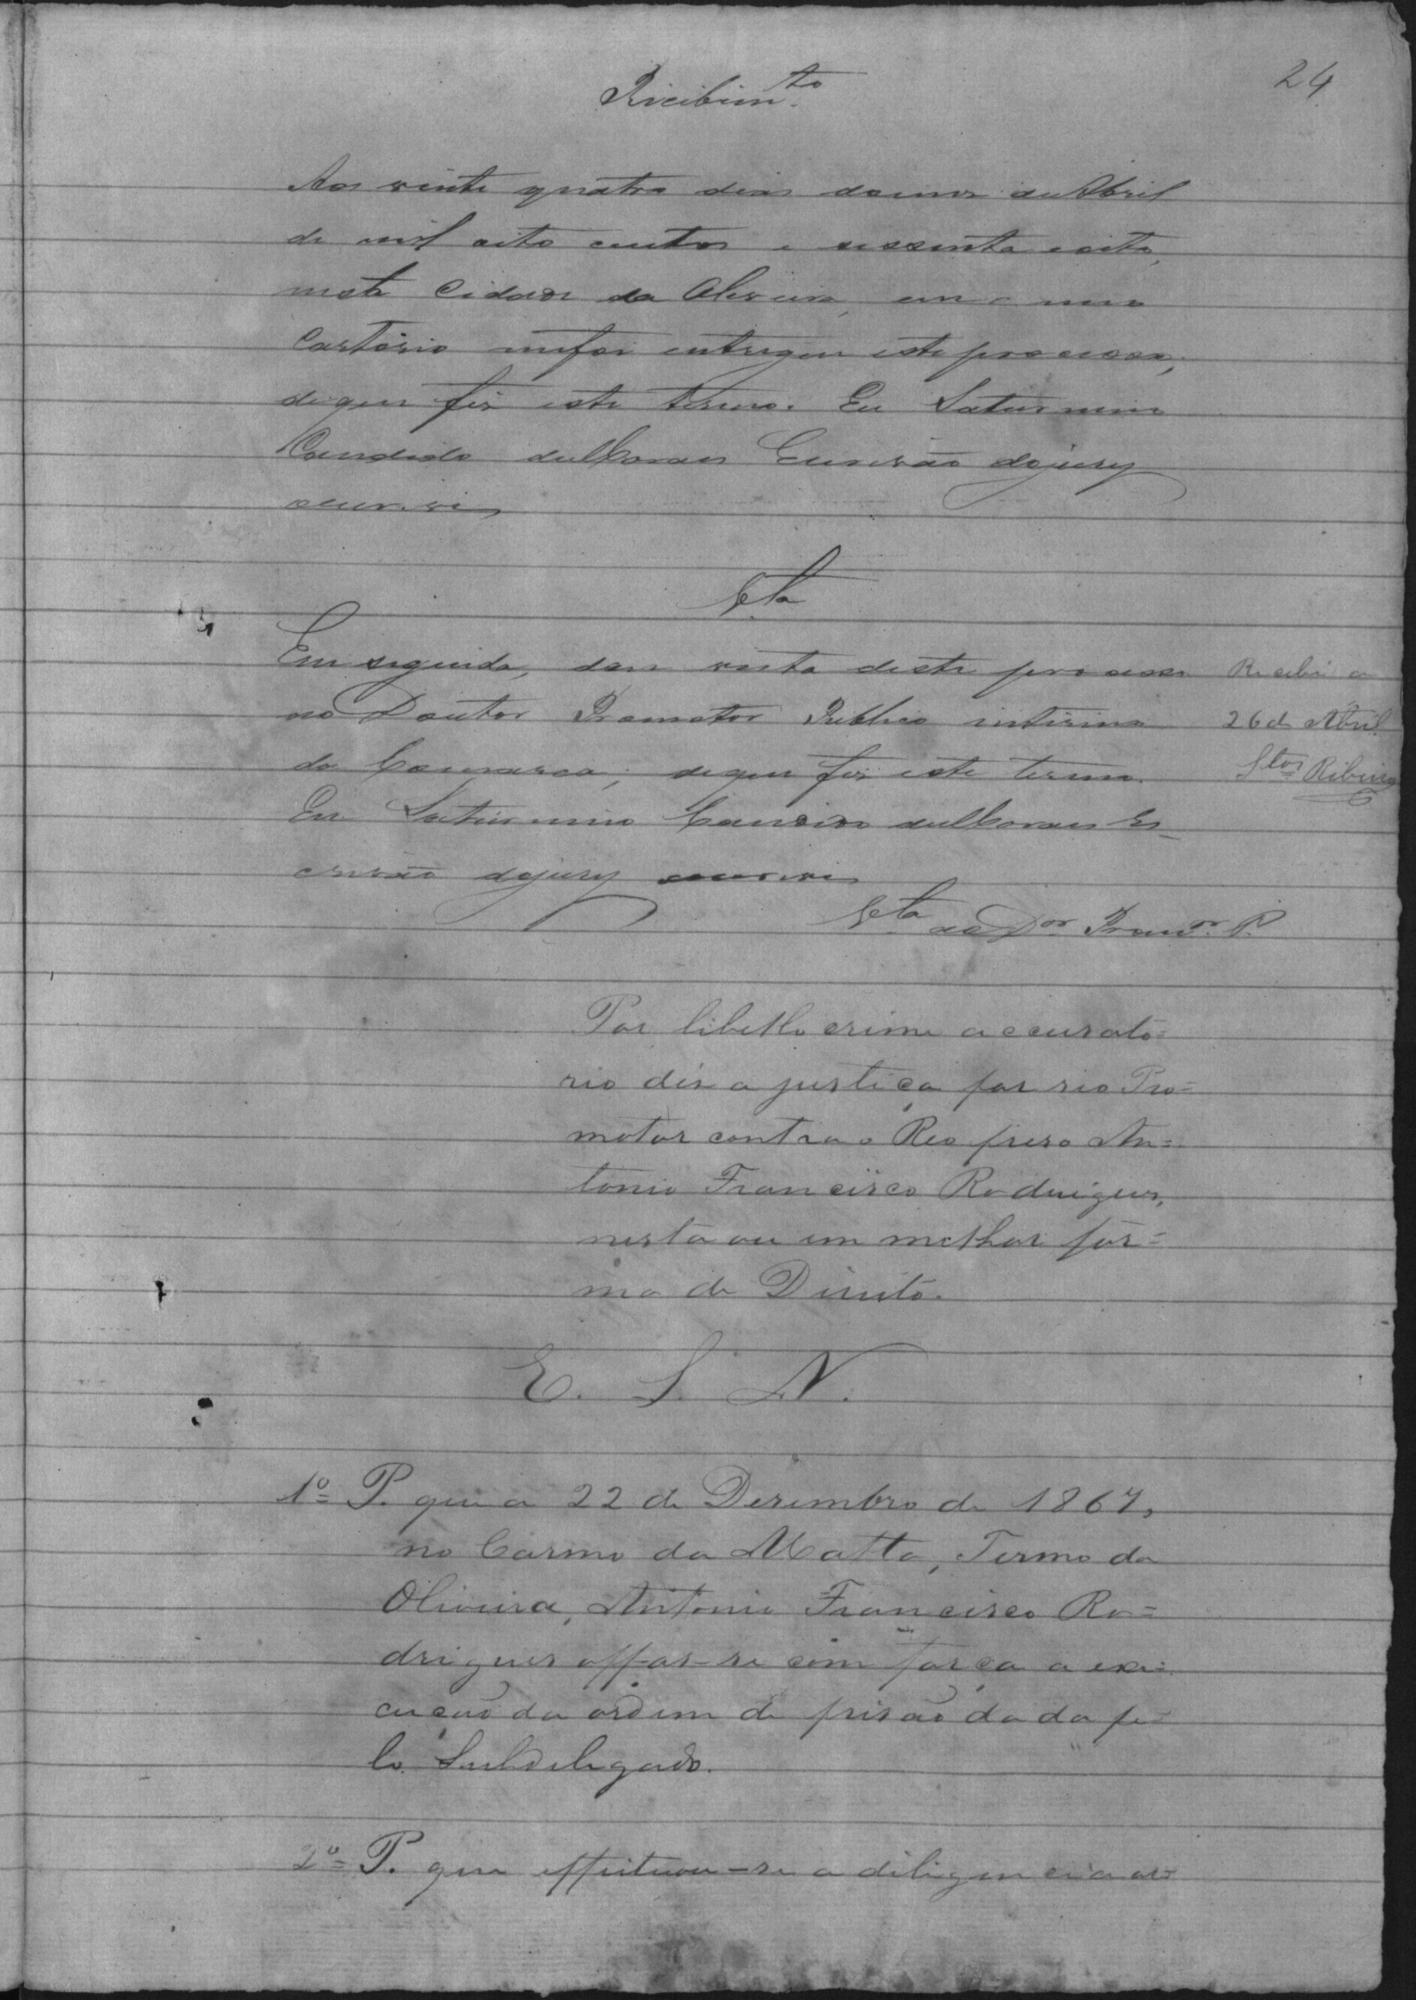 24
Recebim.to
Aos vinte quatro dias do mes de Abril
de mil oito centos e sessenta e oito,
nesta Cidade da Oliveira, em o meu
Cartorio me foi entregue este processo,
de que fiz este termo. Eu Saturnino
Candido de Moraes Escrivão do jury
escrevi
V.ta
Em seguida, dou vista deste processo
ao Doutor Promotor Publico interino
da Comarca, de que fiz este termo.
Eu Saturnino Candido de Moraes Es-
crivão do jury escrevi
Recebi a
26 de Abril
S.tos Ribeiro
V.ta ao D.or Prom.or P.
Por libello crime accusato=
rio diz a justiça por seo Pro=
motor contra o Reo preso An=
tonio Francisco Rodrigues,
nesta ou em melhor for=
ma de Direito.
E. S. N.
1º P. que a 22 de Dezembro de 1867,
no Carmo da Matta, Termo da
Oliveira, Antonio Francisco Ro=
drigues oppos-se com força a exe=
cução da ordem de prisão dada pe=
lo Subdelegado.
2º P. que effeituou-se a diligencia or=